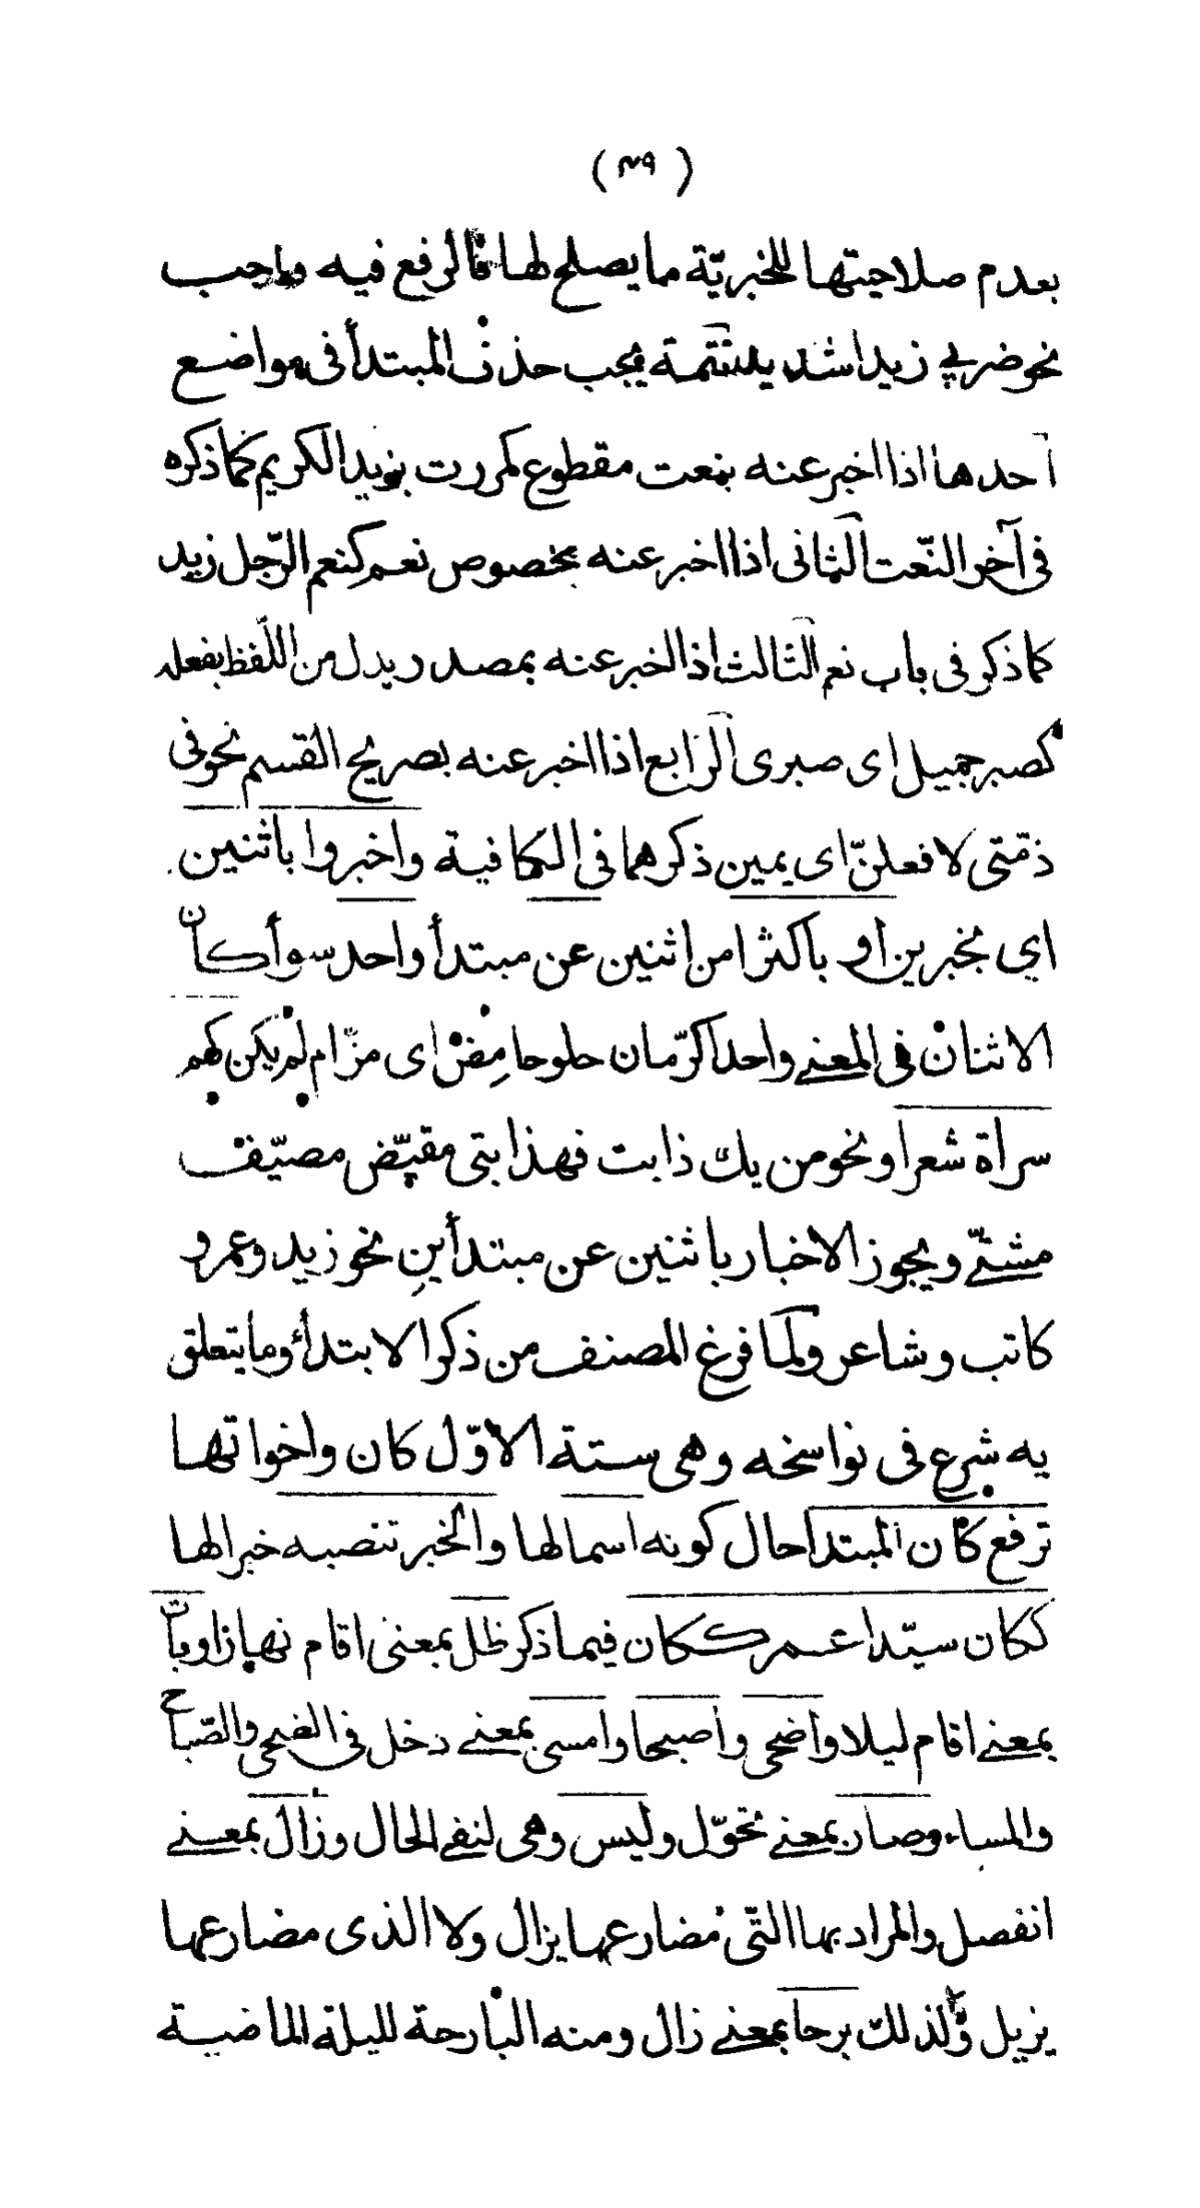 (٤٩)
بعدم صلاحيتها للخبريّة مما يصلح لها فالرفع فيه واجب
نحو ضربي زيدا شديد تتمة يجب حذف المبتدأ في مواضع
آحدها اذا اخبر عنه بنعت مقطوع كمررت بزيد الكريم كما ذكره
فى آخر النّعت الثانى اذا اخبر عنه بمخصوص نعم كنعم الرّجل زيد
كما ذكر فى باب نعم الثالث اذا اخبر عنه بمصدر بدل من اللّفظ بفعله
كصبر جميل اى صبرى الرابع اذا اخبر عنه بصريح القسم نحو فى
ذمّتى لافعلنّ اى يمين ذكرهما فى الكافية واخبروا باثنين
اي بخبرين أو باكثرا من اثنين عن مبتدأ واحد سوأ كان
الاثنان فى المعنے واحدا كرّمان حلو حامض اى مزّ ام لم يكن كهم
سراة شعرا ونحو من يك ذابت فهذا بتى مقيّض مصيّف
مشتّے ويجوز الاخبار باثنين عن مبتدأينِ نحو زيد وعمرو
كاتب وشاعر ولمّا فرغ المصنف من ذكر الابتدأ وما يتعلق
به شرع فى نواسخه وهى ستة الاوّل كان واخواتها
ترفع كان المبتدا حال كونه اسما لها والخبر تنصبه خبرا لها
ككان سيّدا عمر ككان فيما ذكر ظل بمعنى اقام نهارا وبات
بمعنے اقام ليلا واضحى واصبحا وامسى بمعنے دخل فى الضحى والصّباح
والمساء وصار بمعنے تحوّل وليس وهى لنفے الحال وزال بمعنے
انفصل والمراد بها الّتى مضارعها يزال ولا الذى مضارعها
يزيل وكذلك برحا بمعنے زال ومنه البارحة لليلة الماضية